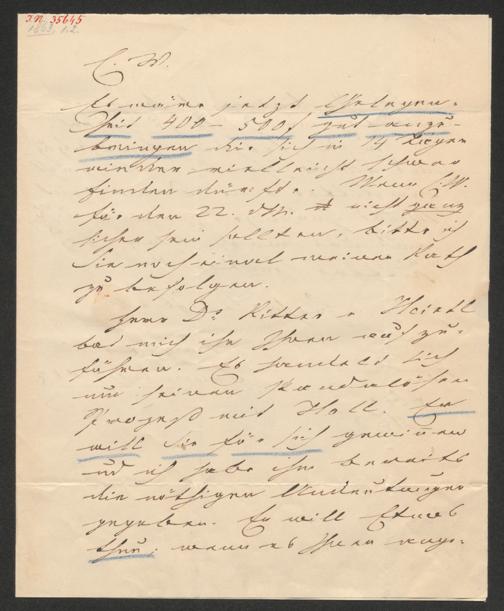 I.N. 35645
E. W.
Es wäre jetzt Gelegen-
heit 400 – 500 f gut anzu-
bringen die sich in 14 Tagen
wieder vielleicht schwer
finden dürfte. Wenn E.W.
für den 22. d.M. nicht ganz
sicher sein sollten, bitte ich
Sie noch einmal meinen Rath
zu befolgen.
Herr Dr Ritter v
bat mich ihn Ihnen aufzu-
führen. Es handelt sich
um seinen skandalösen
Prozeß mit Holl. Er
will Sie für sich gewinnen
und ich habe ihm bereits
die nöthigen Andeutungen
gegeben. Er will Etwas
thun, wenn es Ihnen ange-